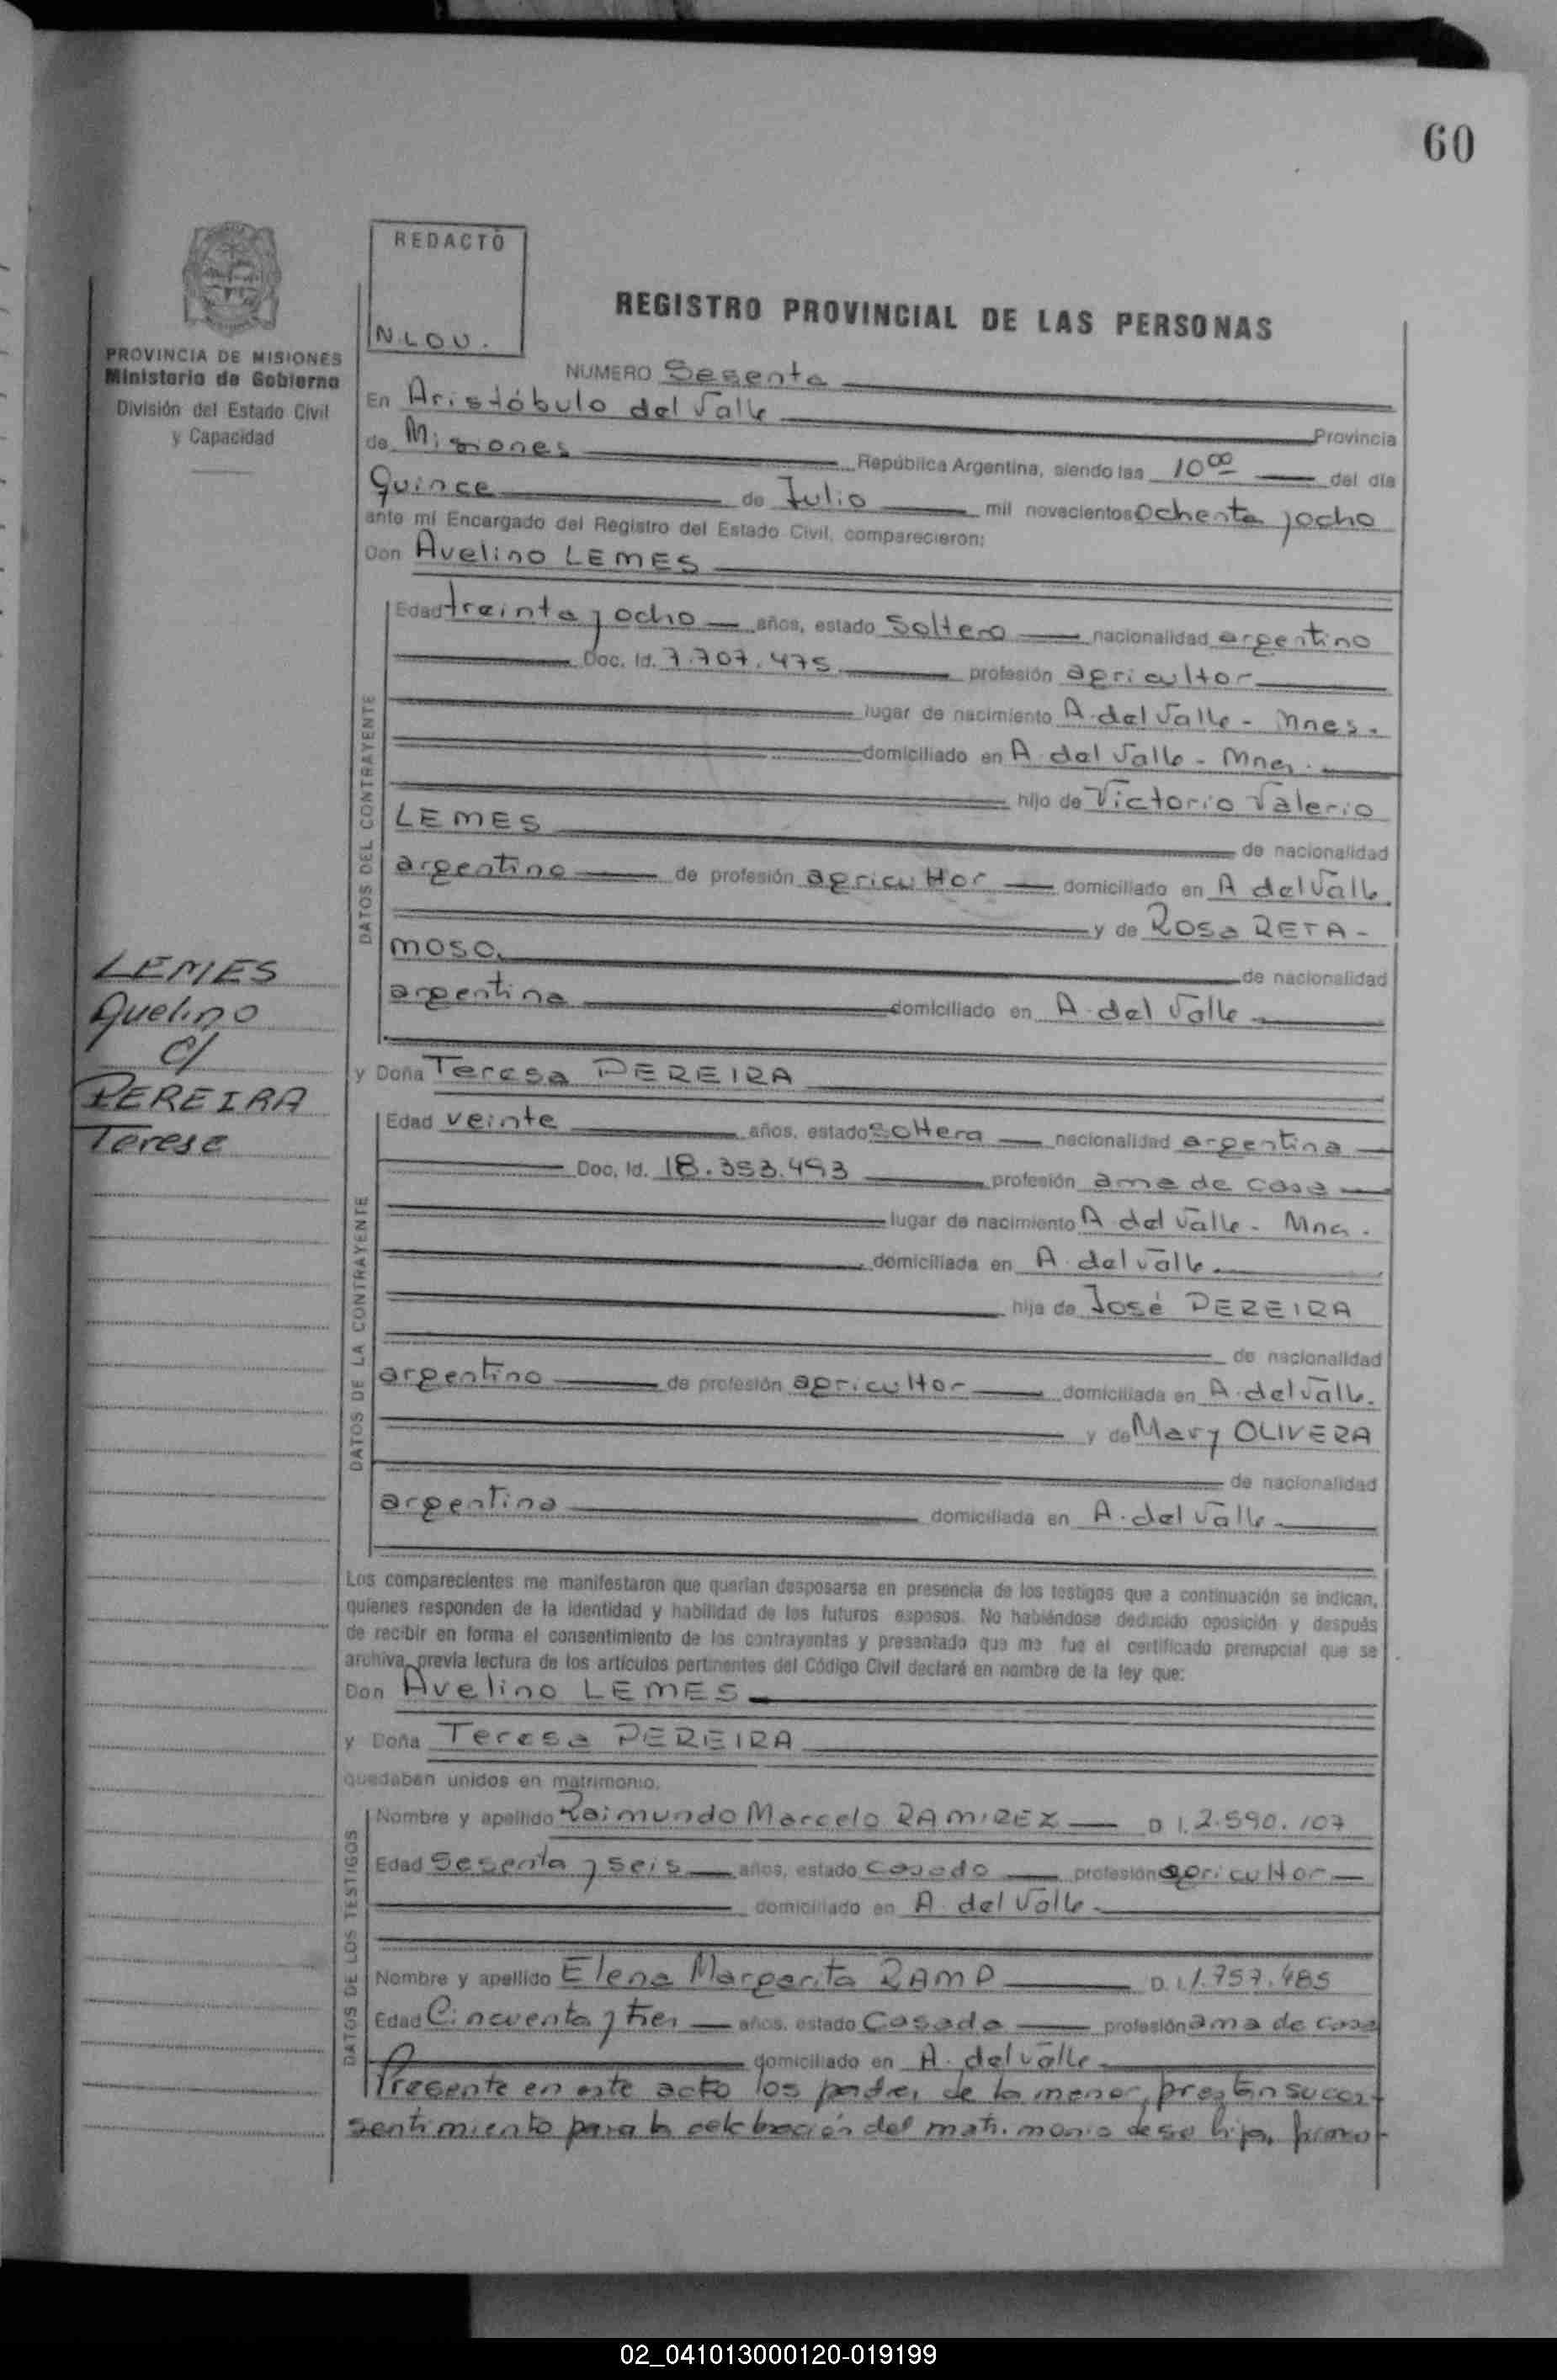 60
REDACTÓ
N.LOU.
PROVINCIA DE MISIONES
Ministerio de Gobierno
División del Estado Civil
y Capacidad
REGISTRO PROVINCIAL DE LAS PERSONAS
NUMERO Sesenta
En Aristóbulo del Valle Provincia
de Misiones República Argentina, siendo las 10 00 del día
Quince de Julio mil novecientos Ochenta y ocho
ante mí Encargado del Registro del Estado Civil, comparecieron:
Don Avelino LEMES
DATOS DEL CONTRAYENTE
Edad treinta y ocho años, estado Soltero nacionalidad argentino
Doc. Id. 7.707.475 profesión agricultor
lugar de nacimiento A. del Valle - Mnes.
domiciliado en A. del Valle - Mnes.
hijo de Victorio Valerio
LEMES de nacionalidad
argentino de profesión agricultor domiciliado en A del Valle
y de Rosa RETA-
MOSO. de nacionalidad
argentina domiciliado en A. del Valle
LEMES
Avelino
c/
PEREIRA
Teresa
y Doña Teresa PEREIRA
DATOS DE LA CONTRAYENTE
Edad veinte años, estado soltera nacionalidad argentina
Doc. Id. 18.353.493 profesión ama de casa
lugar de nacimiento A del Valle - Mnes.
domiciliada en A. del Valle.
hija de José PEREIRA
de nacionalidad
argentino de profesión agricultor domiciliada en A. del Valle.
y de Mary OLIVERA
de nacionalidad
argentina domiciliada en A. del Valle
Los comparecientes me manifestaron que querían desposarse en presencia de los testigos que a continuación se indican,
quienes responden de la identidad y habilidad de los futuros esposos. No habiéndose deducido oposición y después
de recibir en forma el consentimiento de los contrayentes y presentado que me fue el certificado prenupcial que se
archiva, previa lectura de los artículos pertinentes del Código Civil declaré en nombre de la ley que:
Don Avelino LEMES
y Doña Teresa PEREIRA
quedaban unidos en matrimonio.
DATOS DE LOS TESTIGOS
Nombre y apellido Raimundo Marcelo RAMIREZ D. I. 2.590.107
Edad Sesenta y seis años, estado Casado profesión agricultor
domiciliado en A. del Valle
Nombre y apellido Elena Margarita RAMP D. I. 1.757.485
Edad Cincuenta y tres años, estado Casada profesión ama de casa
domiciliado en A. del Valle
Presente en este acto los padres de la menor, prestan su con-
sentimiento para la celebración del matrimonio de su hija,
02_041013000120-019199